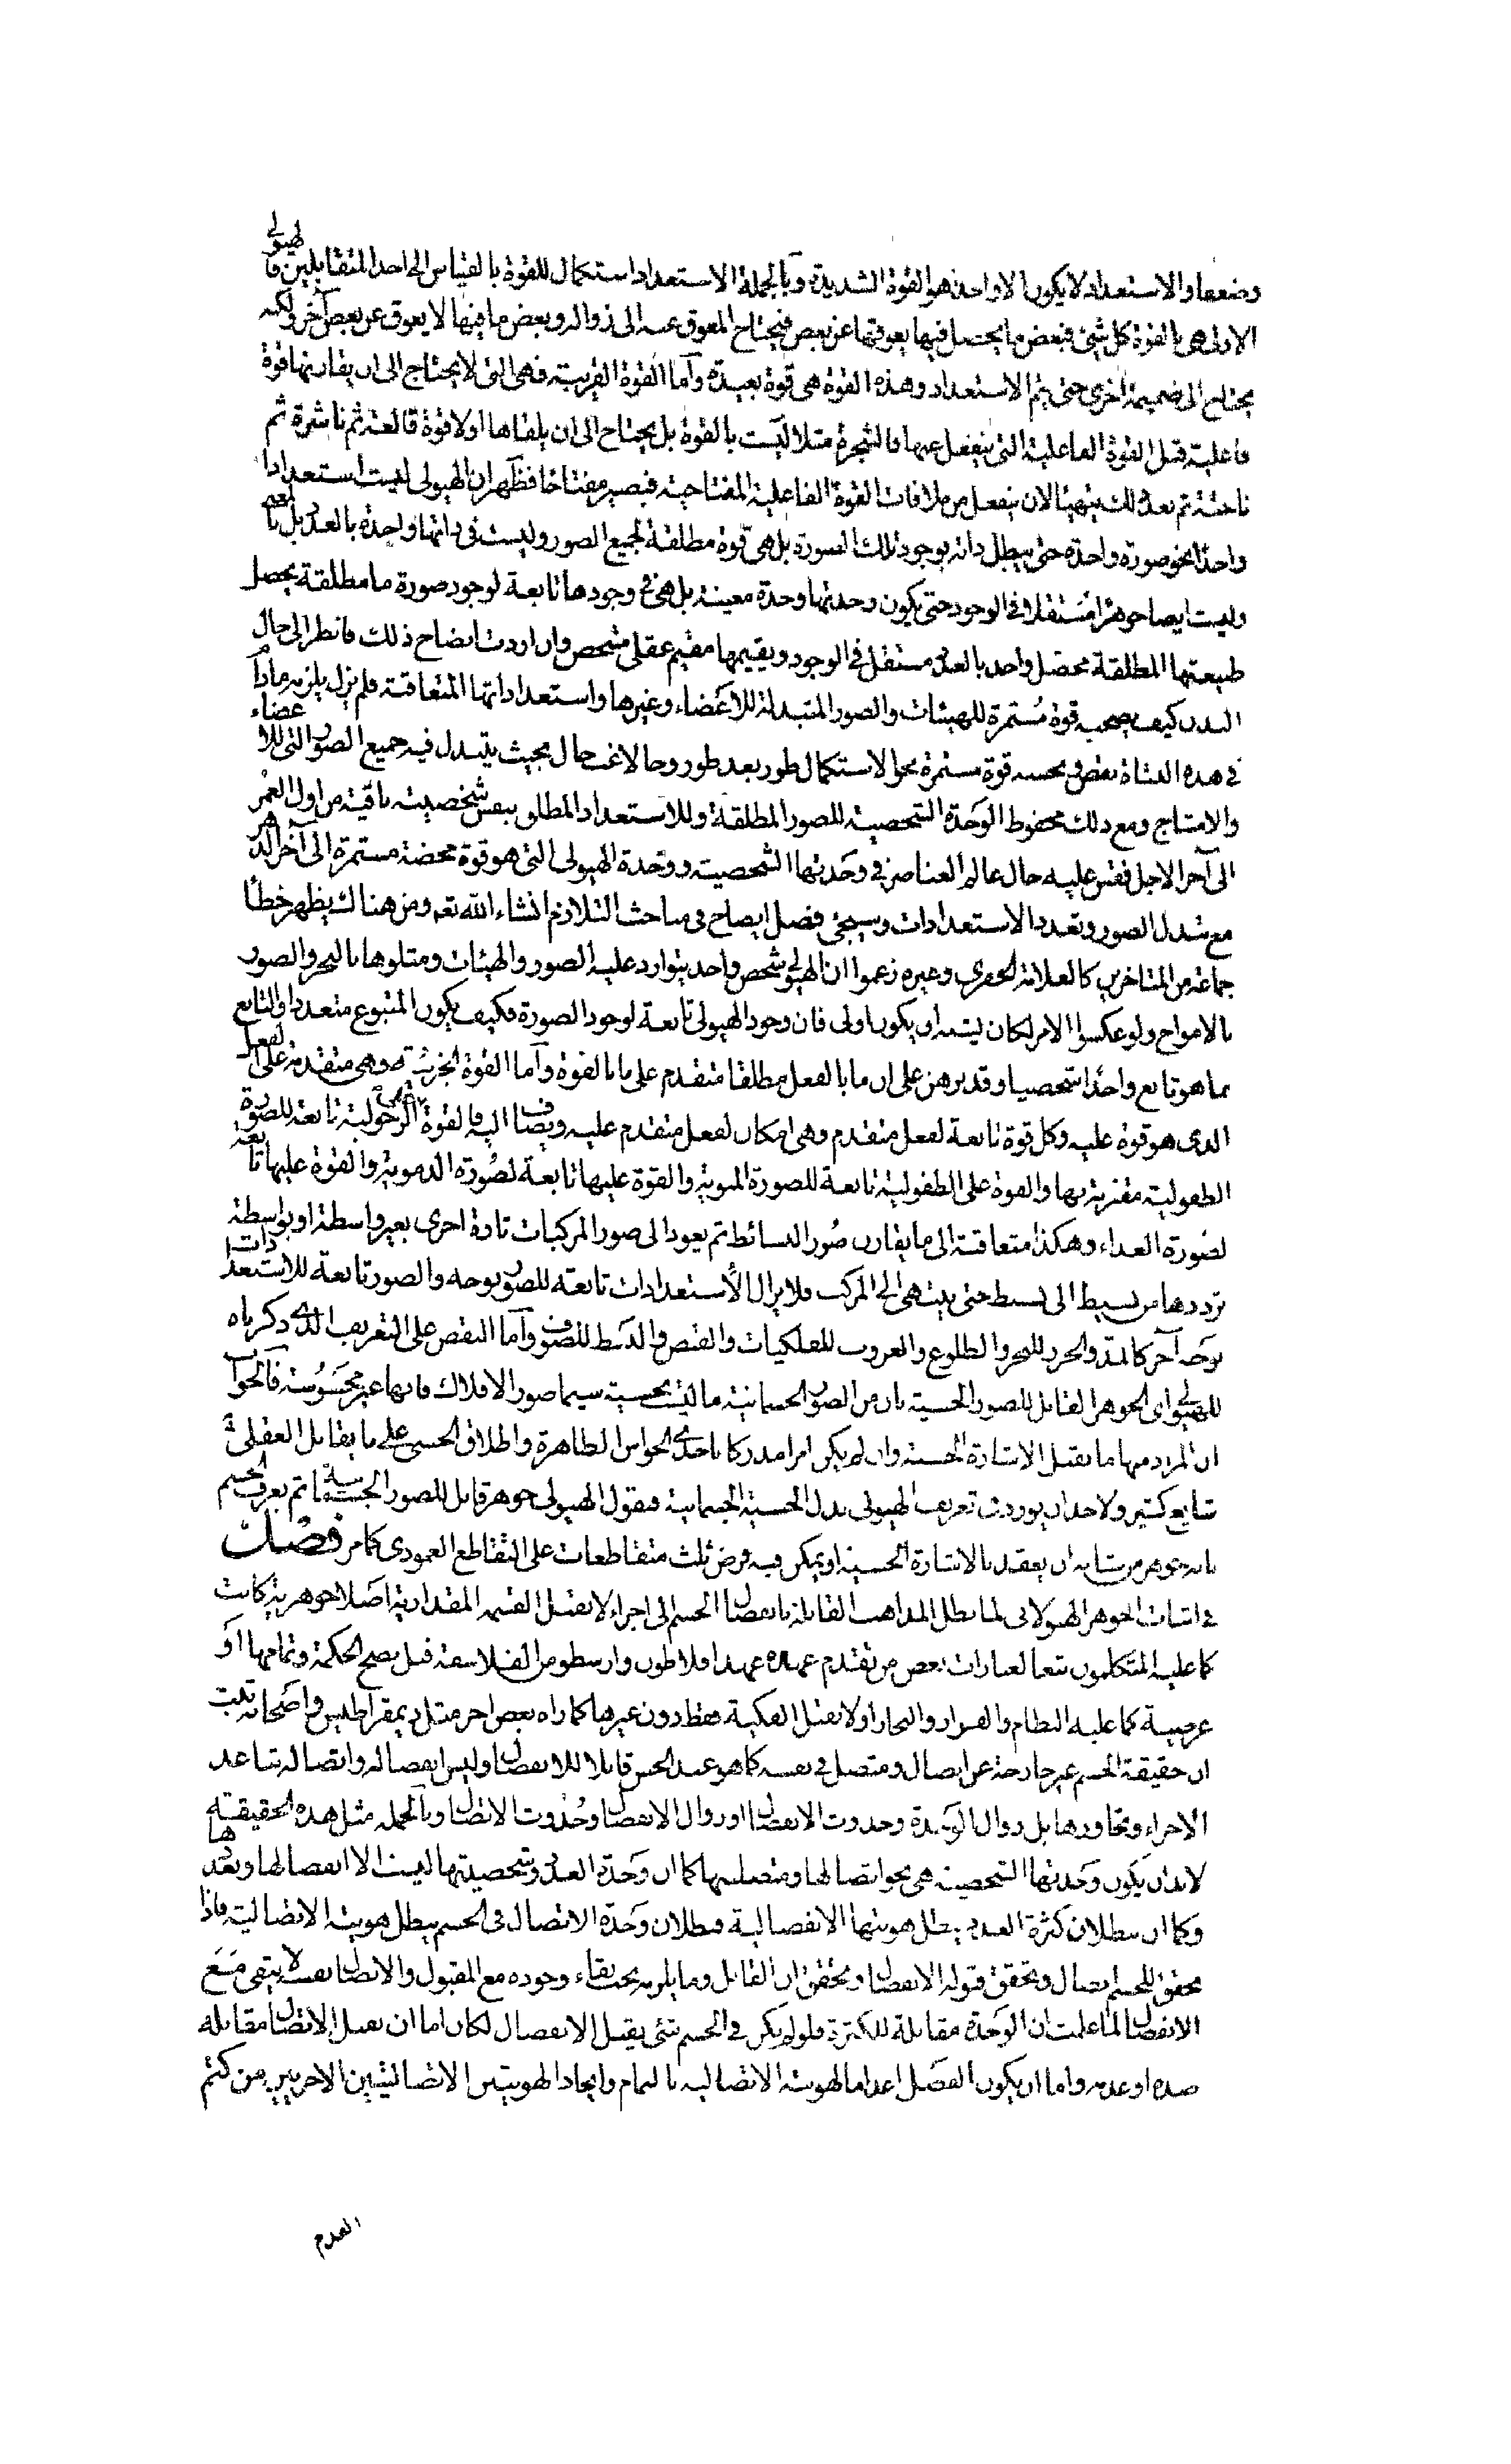 وضعفها والاستعداد لا يكون الا واحد هو القوة الشديدة وبالجملة الاستعداد استكمال للقوة بالقياس الى احد المتقابلين فالهيولى
الاولى هى بالقوة كل شئ فبعض ما يحصل فيها يعوقها عن بعص فيحتاج المعوق عنه الى زواله وبعض ما فيها لا يعوق عن بعص آخر ولكنه
يحتاج الى ضميمة اخرى حتى يتم الاستعداد وهذه القوة هى قوة بعيدة وآما القوة القريبة فهى التى لا يحتاج الى ان يقارنها قوة
فاعلية قبل القوة الفاعلية التى ينفعل عنها فالشجرة مثلا ليست بالقوة بل يحتاج الى ان يلقاها اولا قوة قالعة ثم ناشرة ثم
ناحتة ثم بعد ذلك يتهيا لان ينفعل من ملاقات القوة الفاعلية المفتاحية فيصير مفتاحا فظهر ان الهيولى ليست استعدادا
واحدا نحو صورة واحدة حتى يبطل ذاته بوجود تلك الصورة بل هى قوة مطلقة لجميع الصور وليست فى ذاتها واحدة بالعدد بل بالمعنى
وليست ايضا جوهرا مستقلا فى الوجود حتى يكون وحدتها وحدة معينة بل هى فى وجودها تابعة لوجود صورة ما مطلقة يحصل
طبيعتها المطلقة محصل واحد بالعدد مستقل فى الوجود ويقيمها مقيم عقلى متشخص وان اردت ايضاح ذلك فانظر الى حال
البدن كيف يصحبه قوة مُستمرة للهيئات والصور المتبدلة للاعضاء وغيرها واستعداداتها المتعاقبة فلم يزل يلزمه مادام
فى هذه النشاة نقص فى نحسه قوة مستمرة نحو الاستكمال طور بعد طور وحالا غب حال بحيث يتبدل فيه جميع الصور التى للاعضاء
والامشاج ومع ذلك محفوظ الوحدة الشخصية للصور المطلقة وللاستعداد المطلق بنفس شخصيته باقية من اول العمر
الى آخر الاجل فقس عليه حال عالم العناصر فى وحدتها الشخصية ووحدة الهيولى التى هو قوة محضة مستمرة الى آخر الدهر
مع تبدل الصور وتعدد الاستعدادات وسيجئ فضل ايضاح فى مباحث التلازم انشاء الله تعه ومن هناك يظهر خطأ
جماعة من المتاخرين كالعلامة الخفرى وغيره زعموا ان الهيولى شخص واحد يتوارد عليه الصور والهيئات ومثلوها بالبحر والصور
بالامواج ولو عكسوا الامر لكان يشبه ان يكون اولى فان وجود الهيولى تابعة لوجود الصورة فكيف يكون المتبوع متعددا والتابع
بما هو تابع واحدا شخصيا وقد برهن على ان ما بالفعل مطلقا متقدم على ما بالقوة وآما القوة الجزئية فهى متقدمة على الفعل
الذى هو قوة عليه وكل قوة تابعة لفعل متقدم وهى امكان لفعل متقدم عليه ويضاف اليه فالقوة على الرجولية تابعة للصورة
الطفولية مقترنة بها والقوة على الطفولية تابعة للصورة المنوية والقوة عليها تابعة لصورة الدموية والقوة عليها تابعة
لصورة الغذاء وهكذا متعاقبة الى ما يقارن صُور البسائط ثم يعود الى صور المركبات تارة اخرى بغير واسطة او بواسطة
ترددها من بسيط الى بسيط حتى ينتهى الى المركب فلا يزال الاستعدادات تابعة للصور بوجه والصور تابعة للاستعدادات
بوجه آخر كالمد والجزر للبحر والطلوع والغروب للفلكيات والقبض والبسط للصوفى وآما النقض على التعريف الذى ذكرناه
للهيولى اى الجوهر القابل للصور الحسية بان من الصور الجسمانية ما ليست بحسية سيما صور الافلاك فانها غير محسوسة فالجواب
ان المراد منها ما يقبل الاشارة الحسية وان لم يكن امرا مدركا باحدى الحواس الظاهرة واطلاق الحسى على ما يقابل العقلى
شايع كثير ولاحد ان يورد فى تعريف الهيولى بدل الحسية الجسمانية فيقول الهيولى جوهر قابل للصور الجسمانية ثم يعرف الجسم
بانه جوهر من شانه ان يعقد بالاشارة الحسية او يمكن فيه فرض ثلث متقاطعات على التقاطع العمودى كما مر فصل
فى اثبات الجوهر الهيولانى لما بطل المذاهب القائلة بانفصال الجسم الى اجزاء لا يقبل القسمة المقدارية اصلا جوهرية كانت
كما عليه المتكلمون تبعا لعبارات بعص من تقدم عهده عهد افلاطون وارسطو من الفلاسفة قبل نضج الحكمة وتمامها او
عرضية كما عليه النظام والضرار والنجار او لا يقبل الفكية فقط دون غيرها كما راه بعض اخر مثل ذيمقراطيس واصحابه ثبت
ان حقيقة الجسم غير خارجة عن اتصال ومتصل فى نفسه كما هو عند الحس قابلا للانفصال وليس انفصاله واتصاله تباعد
الاجزاء وتجاورها بل زوال الوحدة وحدوث الانفصال او زوال الانفصال وحدوث الاتصال وبالجمله مثل هذه الحقيقة
لابد ان يكون وحدتها الشخصية هى نحو اتصالها ومتصليتها كما ان وحدة العدد وشخصيتها ليست الا انفصالها وتعددها
وكما ان ببطلان كثرة العدد يبطل هويتها الانفصالية فبطلان وحدة الاتصال فى الجسم يبطل هويته الاتصالية فاذا
تحقق للجسم اتصال وتحقق قبوله الانفصال وتحقق ان القابل وما يلزمه يجب بقاء وجوده مع المقبول والاتصال نفسه لا يبقى مع
الانفصال لما علمت ان الوحدة مقابلة للكثرة فلو لم يكن فى الجسم شئ يقبل الانفصال لكان اما ان يقبل الاتصال مقابله
ضده او عدمه واما ان يكون الفصل اعداما لهويته الاتصاليه بالتمام وايجادا لهويتين الاتصاليتين الاخريين من كتم
العدم